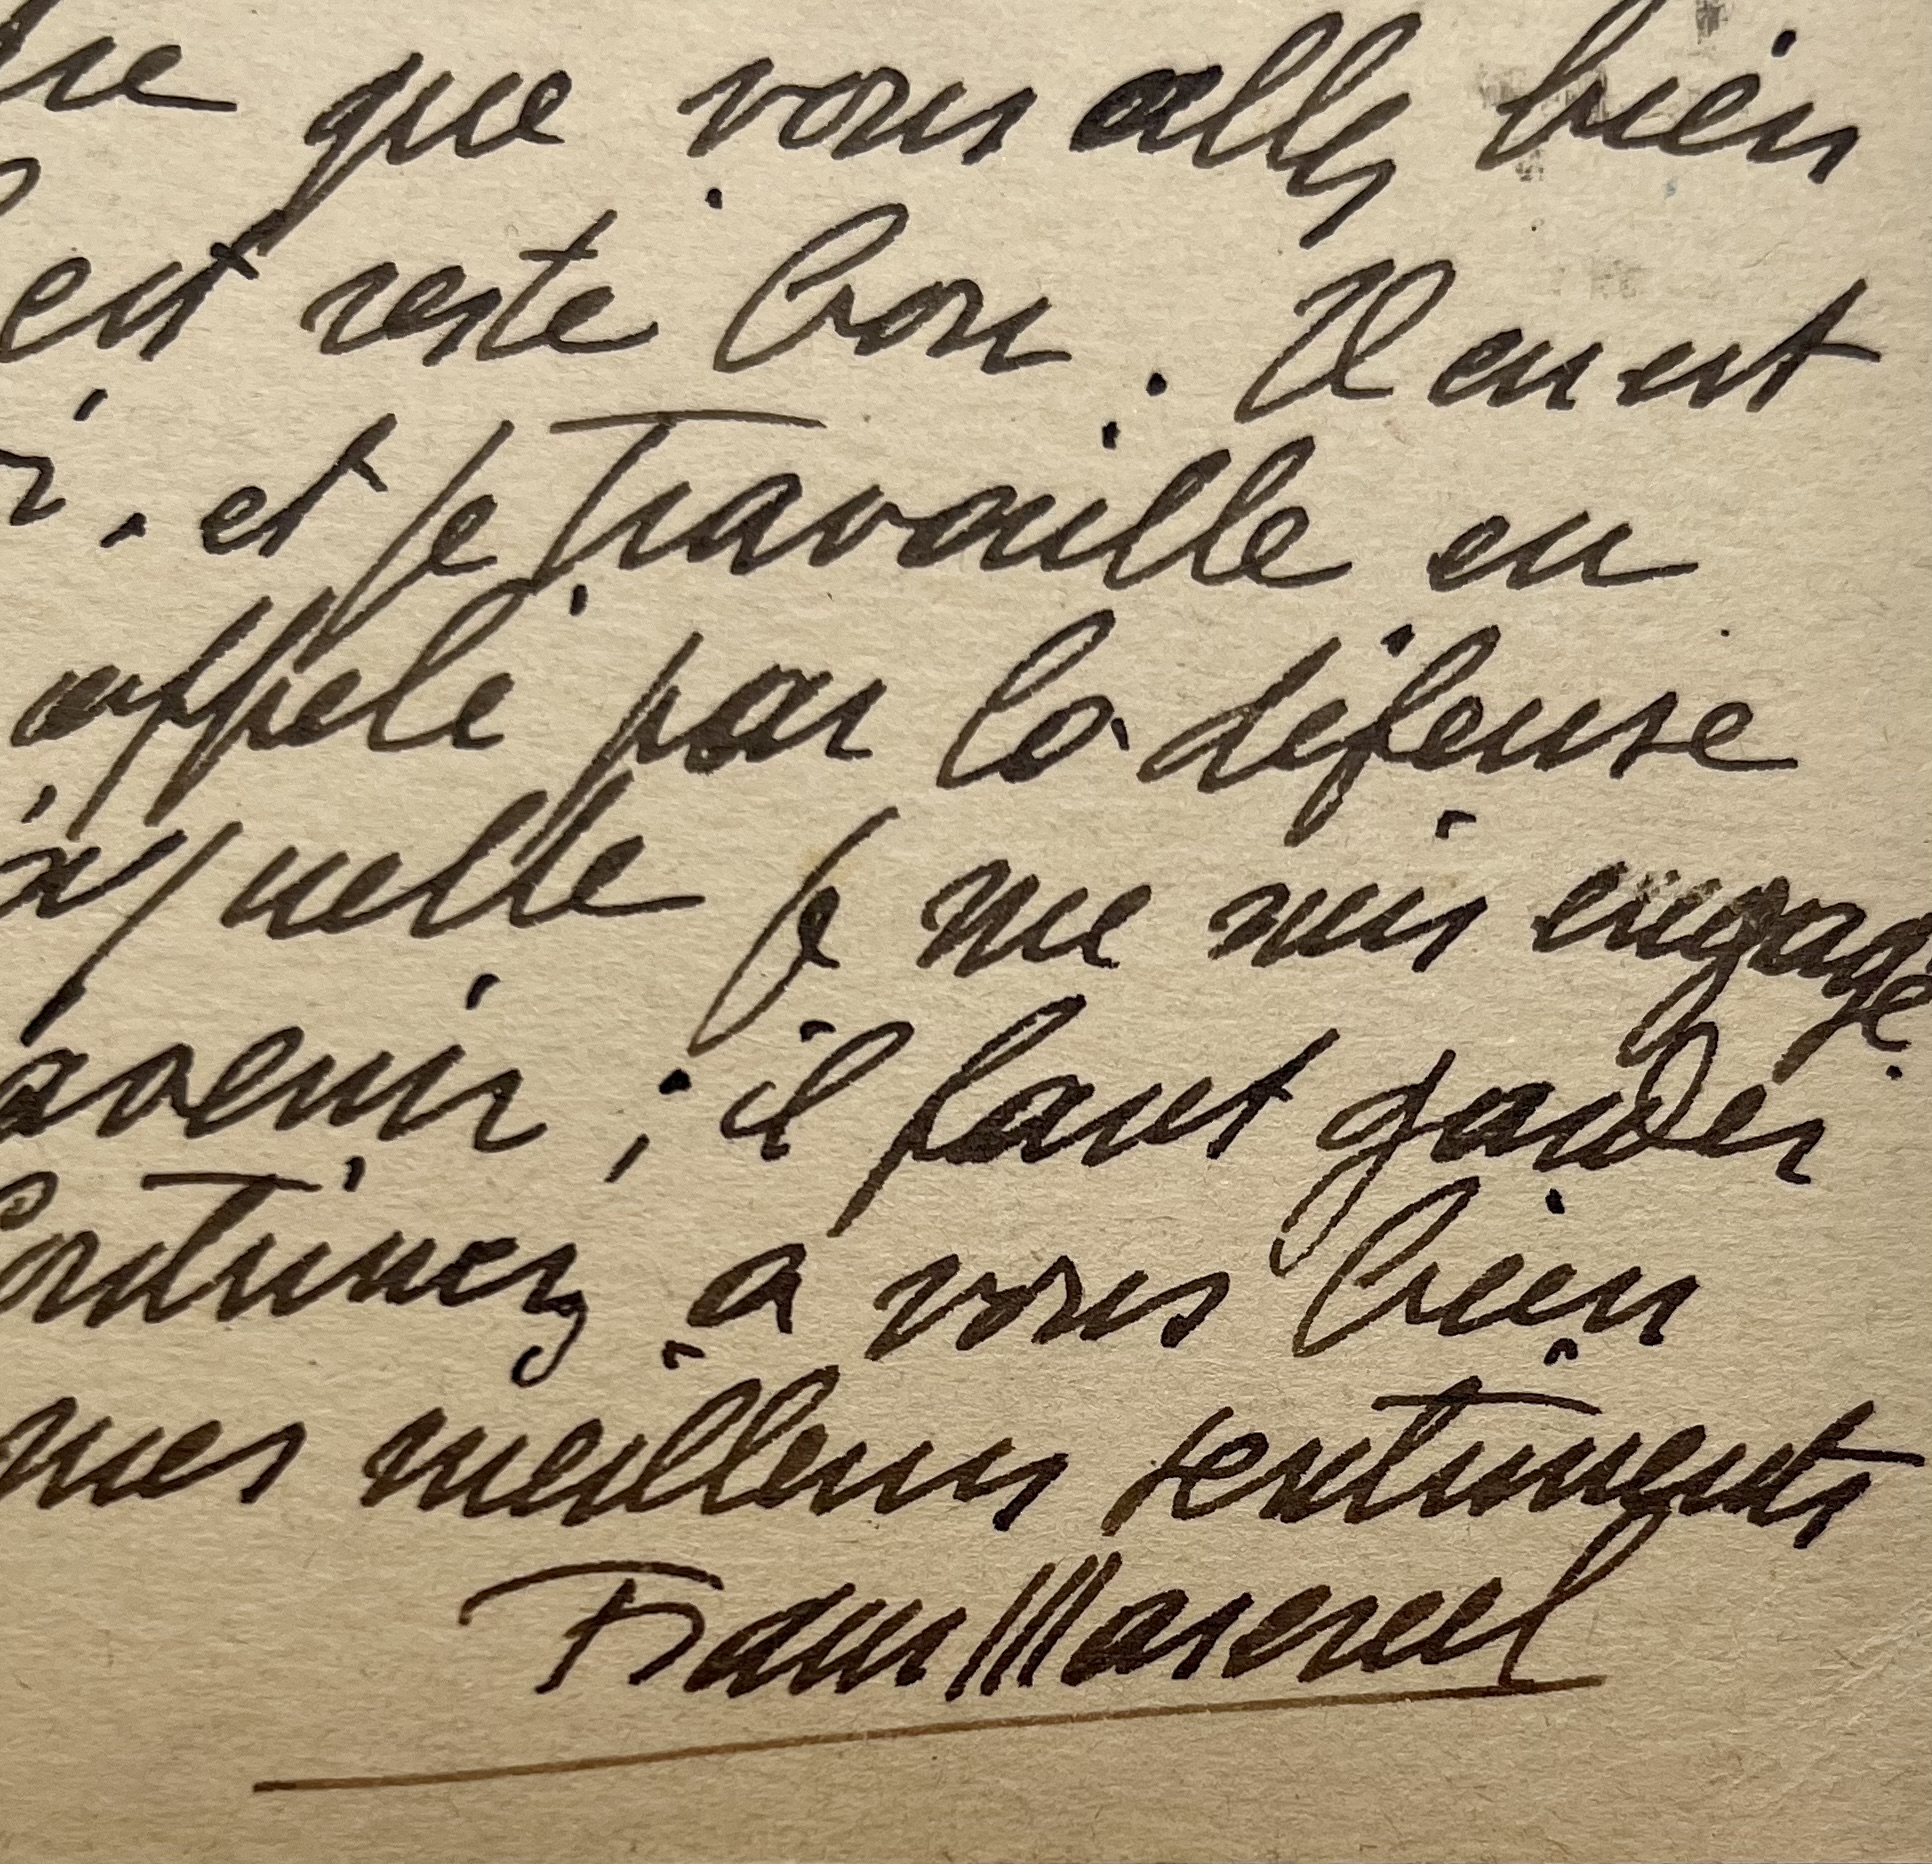 que vous allez bien
est resté bon. Il en est
. et je Travaille en
appelé par la défense
aquelle je me suis engagé.
avenir ; il faut garder
Continuez à vous bien
mes meilleurs sentiments
Frans Masereel